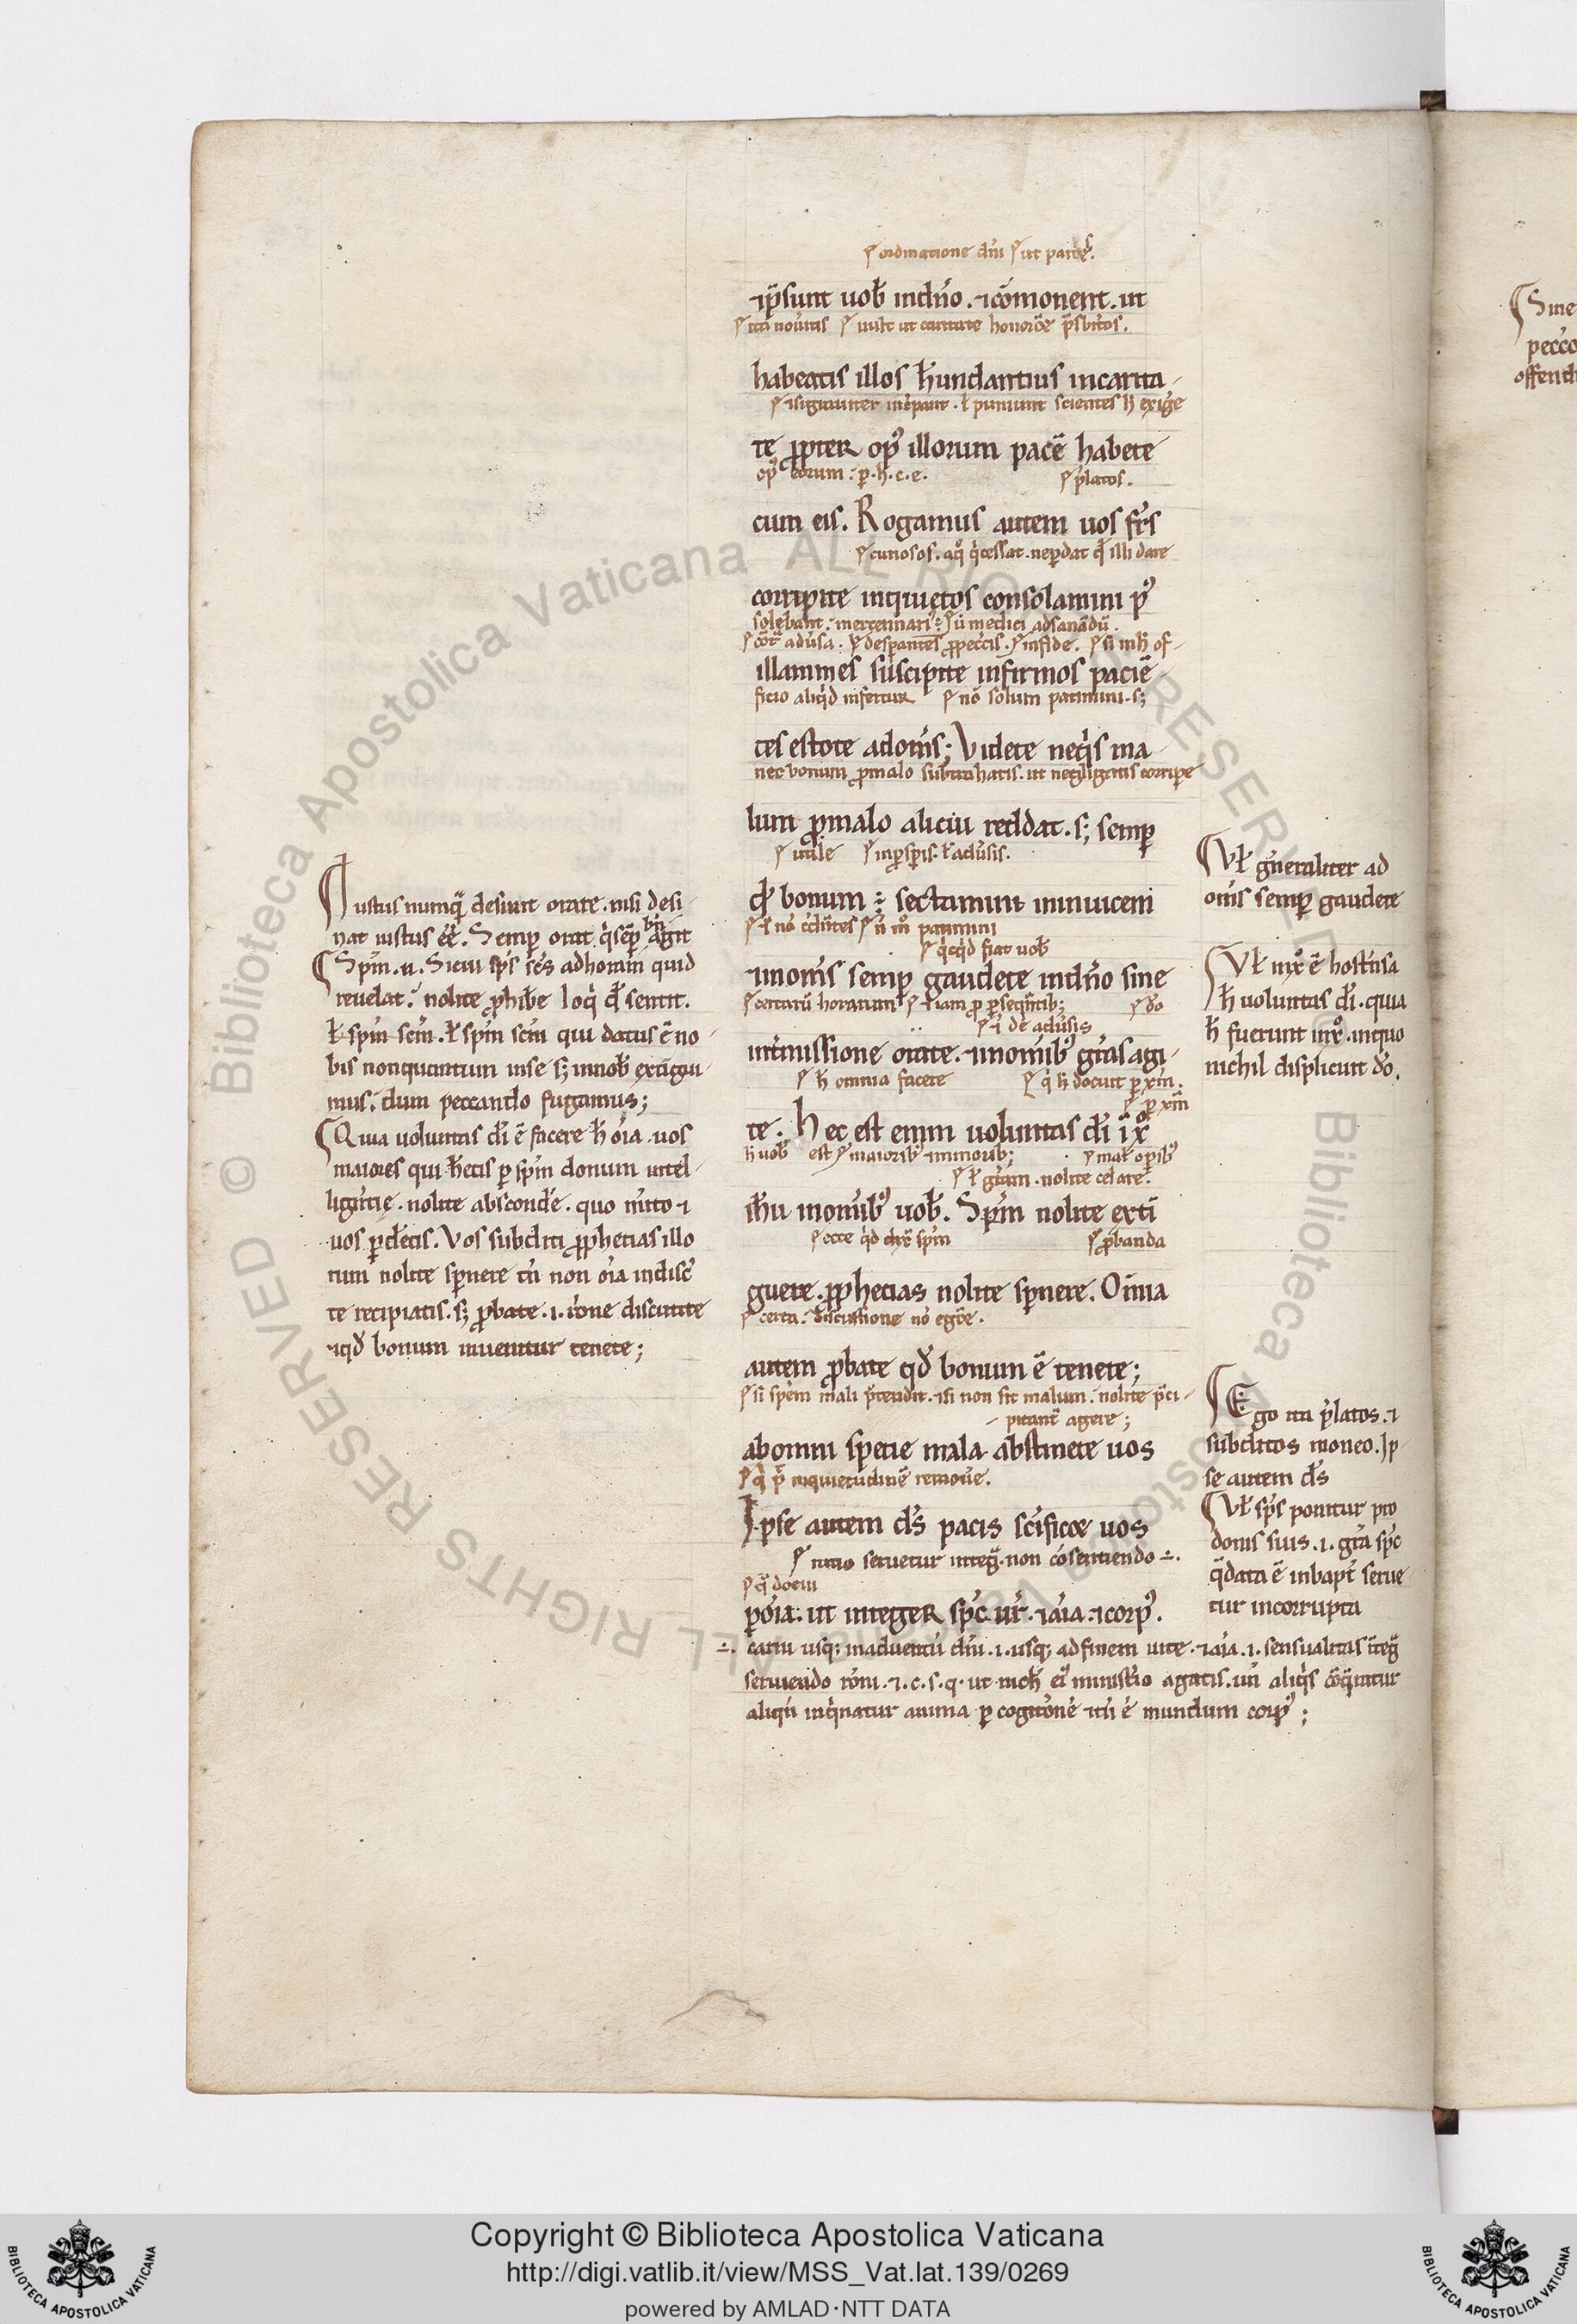 ordinatione dñi ut patres.
⁊p̃sunt uob̃ indño. ⁊cõmonent. ut
ita noueritis uult ut caritate honorẽt p̃sbitos.
habeatis illos hundantius incarita-
⁊si grauiter increpant. ł puniunt scientes h̃ exige
te ꝓpter opꝰ illorum pacẽ habete
opꝰ eorum. p. h. c. e. p̃latos.
cum eis. Rogamus autem uos fr̃s
curiosos. ne perdat qđ illi dare
corripite inquietos consolamini pꝰ
solebant. mercennariꝰ. medici adsanãdũ.
cõt̃ aduersa. desperantes ꝓpeccis. infide. si mh̃ of-
illanimes suscipite infirmos paciẽ-
ficio aliqd̃ infertur nõ solum patimini. s;
tes estote adom̃s; Videte neqis ma
nec bonum ꝓmalo subtrahatis. ut negligatis corripe
lum ꝓmalo alicui reddat. s; semp
utile inꝓspis. ł aduersis.
qđ bonum est sectamini inuicem
⁊ nõ patimini
qicqid fiat uob̃
⁊inom̃s semp gaudete indño sine
certarũ horarum ⁊ iam ꝓ persequentib; do
⁊ de aduersis
int̃missione orate. ⁊inomibꝰ gr̃as agi-
h̃ omnia facere q h̃ docuit per xp̃m.
per xp̃m
te. Hec est enim uoluntas di ĩ xpo
h̃ uob̃ est maioribꝰ ⁊minorib; malis operibꝰ
ł gratiam. nolite celare.
ih̃u inomibꝰ uob̃. Spm̃ nolite exti
ecce qd̃ spm̃ ꝓbanda
guere. ꝓphetias nolite spnere. Om̃ia
certa. discussione nõ egẽt.
autem ꝓbate qđ bonum ẽ tenete;
si spẽm mali p̃tendit. ⁊si non sit malum. nolite p̃ci-
-pitant̃ agere;
abomni specie mala abstinete uos
inquietudinẽ remoue.
Ipse autem ds̃ pacis sc̃ificet uos
ratio seruetur integra. non cõsentiendo
docui
poĩa. ut integer spc̃ ur̃. ⁊aĩa. ⁊corpꝰ.
carni usq; inaduentũ dñi. .i. usq; adfinem uite. ⁊aĩa. .i. sensualitas integra
seruiendo rõni. ⁊. c. s. q. ut nich̃ eiꝰ ministerio agatis. uñ aliqis cõqinatur
aliqñ inqinatur anima per cogitationẽ ⁊tñ ẽ mundum corpꝰ;
Iustus numqã desinit orare. nisi desi-
nat iustus eẽ. Semp orat qi semp bñ agit
Spm̃. n. Sicui sps̃ sc̃s adhoram quid
reuelat. nolite ꝓhibe loqi qđ sentit.
ł spm̃ scm̃. ł spm̃ scm̃ qui datus ẽ no-
bis nonquantum inse s; inuob̃ extigui-
mus. dum peccando fugamus;
Quia uoluntas di ẽ facere h̃ oĩa. uos
maiores qui h̃etis per spm̃ donum intel-
ligẽtie. nolite abscondẽ. quo merito ⁊
uos perdetis. Vos subditi ꝓphetias illo
rum nolite spnere tñ non oĩa indisc̃
te recipiatis. s; ꝓbate. .i. rõne discutite
⁊qđ bonum inuenitur tenete;
Vł gñeraliter ad
om̃s semp gaudete
Vł inxpo ẽ hostensa
h̃ uoluntas di. quia
h̃ fuerunt inxpo. inquo
nichil displicuit do.
Ego ita p̃latos. ⁊
subditos moneo. Ip-
se autem ds̃
Vł sps̃ ponitur pro
donis suis. .i. gr̃a spc̃
q̃data ẽ inbapt̃ serue
tur incorrupta
Sine
pecco
offend
Copyright © Biblioteca Apostolica Vaticana
http://digi.vatlib.it/view/MSS_Vat.lat.139/0269
powered by AMLAD·NTT DATA
BIBLIOTECA APOSTOLICA VATICANA
BIBLIOTECA APOSTOLICA VATICANA
Biblioteca Apostolica Vaticana ALL RIGHTS RESERVED ©